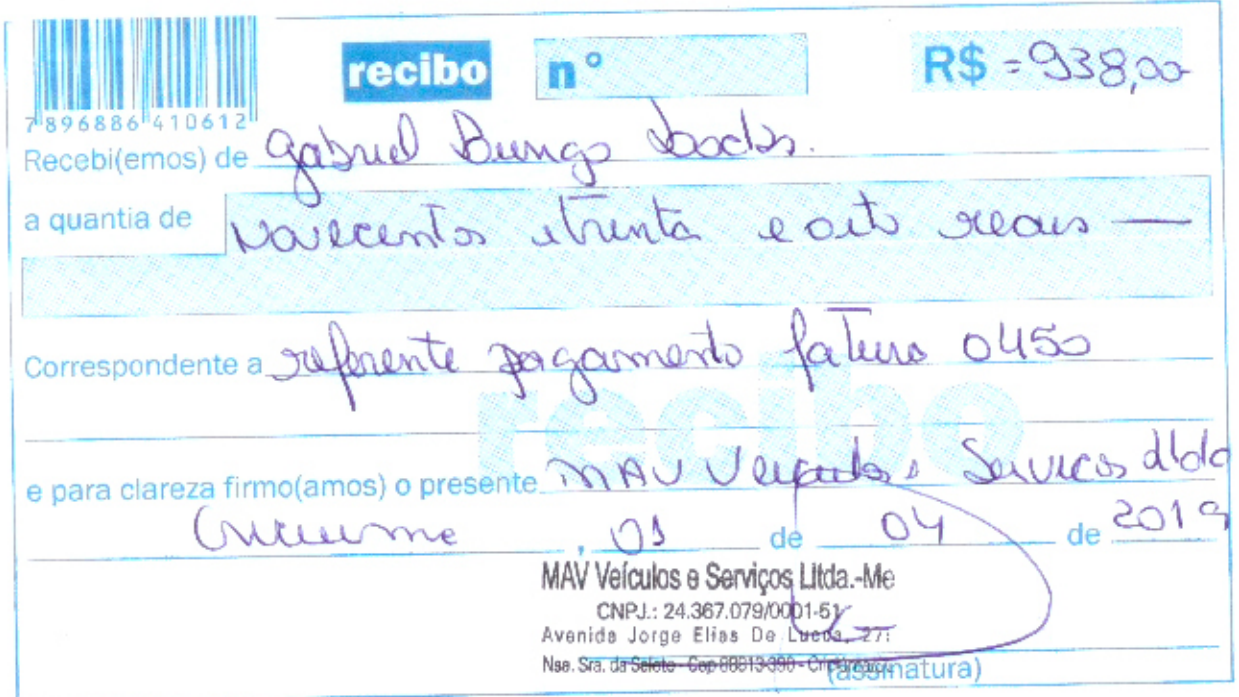 recibo nº R$ = 938,00
7 896886 410612
Recebi(emos) de Gabriel Bungo
a quantia de Novecentos e trinta e oito reais —
Correspondente a referente pagamento fatura 0450
recibo
e para clareza firmo(amos) o presente MAV Veículos e Serviços
Criciuma, 01 de 04 de 2019
MAV Veículos e Serviços Ltda.-Me
CNPJ.: 24.367.079/0001-51
Avenida Jorge Elias De Lucca, 27
Nsa. Sra. da Salete - Cep 88813-390 -
(assinatura)